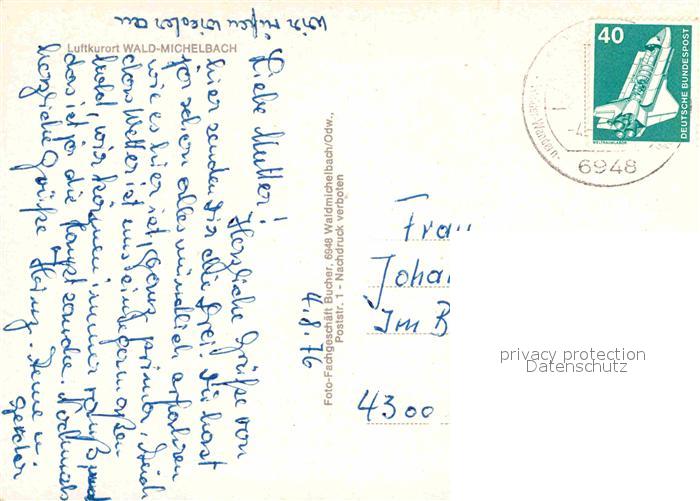 Luftkurort WALD-MICHELBACH
wir rufen wieder an
4.8.76
Liebe Mutter!
Herzliche Grüße von
hier senden Dir die Drei! Du hast
ja schon alles mündlich erfahren
wie es hier ist, ganz prima. Auch
das Wetter ist uns einigermaßen
hold, wir können immer raus und
das ist ja die Hauptsache. Nochmals
herzliche Grüße Heinz. Anne u.
Foto-Fachgeschäft Bucher, 6948 Waldmichelbach/Odw.,
Poststr. 1 - Nachdruck verboten
40
DEUTSCHE BUNDESPOST
WELTRAUMLABOR
6948
Frau
Joha
Im B
4300
privacy protection
Datenschutz